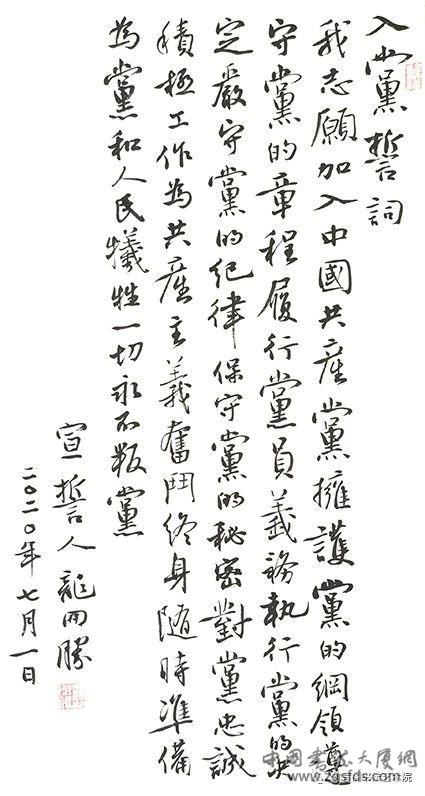 入黨誓詞
我志願加入中國共産黨擁護黨的綱領遵
守黨的章程履行黨員義務執行黨的决
定嚴守黨的纪律保守黨的秘密對黨忠誠
積極工作為共産主義奮鬥终身随時準備
為黨和人民犧牲一切永不叛黨
宣誓人龍開勝
二〇二〇年七月一日
中国书法大厦網
www.zgsfds.com